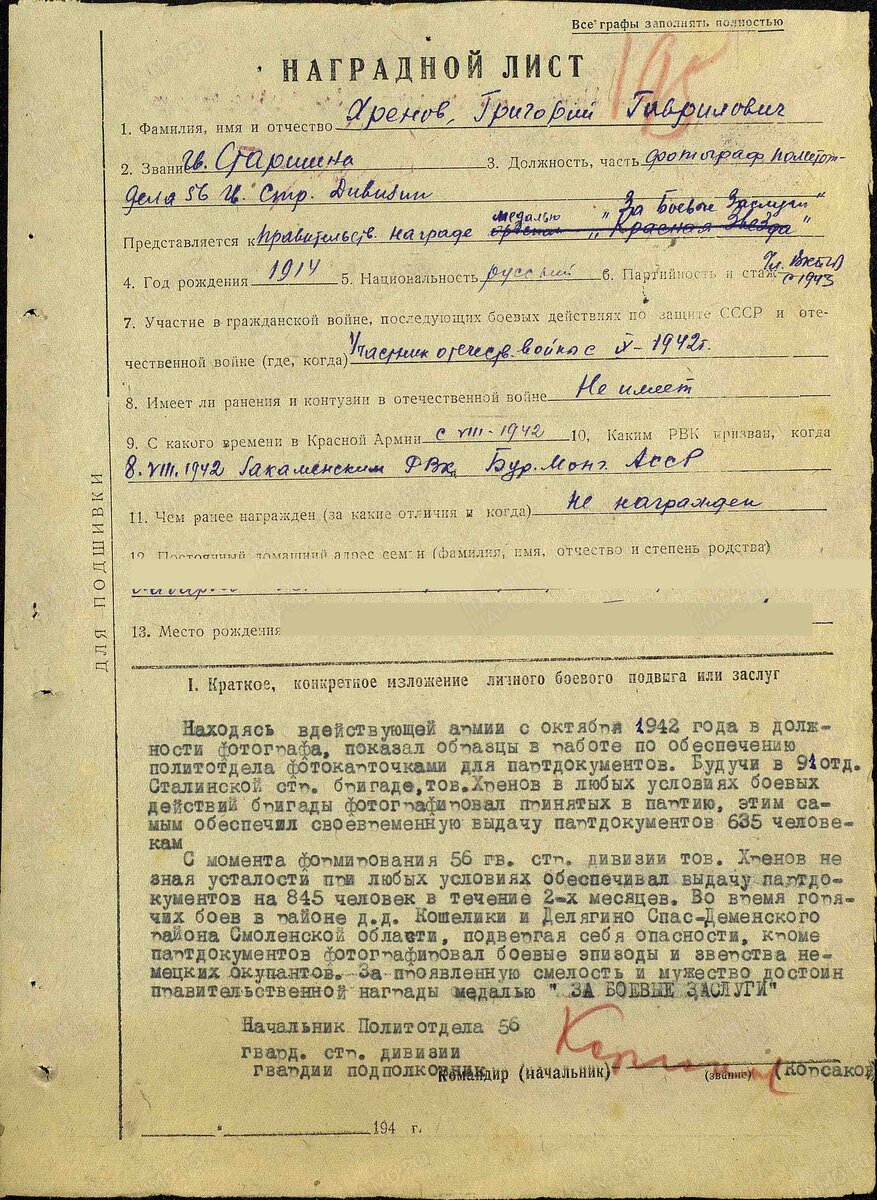 Все графы заполнять полностью
195
НАГРАДНОЙ ЛИСТ
1. Фамилия, имя и отчество Хренов, Григорий Гаврилович
2. Звание Гв. Старшина 3. Должность, часть фотограф политот-
дела 56 Гв. Стр. Дивизии
медалью "За Боевые Заслуги"
Представляется к правительств. награде орденом "Красная Звезда"
4. Год рождения 1914 5. Национальность русский 6. Партийность и стаж чл. ВКП(б)
с 1943
7. Участие в гражданской войне, последующих боевых действиях по защите СССР и оте-
чественной войне (где, когда) Участник отечеств. войны с X - 1942 г.
8. Имеет ли ранения и контузии в отечественной войне Не имеет
9. С какого времени в Красной Армии с VIII - 1942 10, Каким РВК призван, когда
8. VIII. 1942 Закаменским РВК, Бур. Монг. АССР
11. Чем ранее награжден (за какие отличия и когда) Не награжден
12. Постоянный домашний адрес семьи (фамилия, имя, отчество и степень родства)
13. Место рождения
ДЛЯ ПОДШИВКИ
I. Краткое, конкретное изложение личного боевого подвига или заслуг
Находясь вдействующей армии с октября 1942 года в долж-
ности фотографа, показал образцы в работе по обеспечению
политотдела фотокарточками для партдокументов. Будучи в 91 отд.
Сталинской стр. бригаде, тов. Хренов в любых условиях боевых
действий бригады фотографировал принятых в партию, этим са-
мым обеспечил своевременную выдачу партдокументов 635 челове-
кам
С момента формирования 56 гв. стр. дивизии тов. Хренов не
зная усталости при любых условиях обеспечивал выдачу партдо-
кументов на 845 человек в течение 2-х месяцев. Во время горя-
чих боев в районе д.д. Кошелики и Делягино Спас-Деменского
района Смоленской области, подвергая себя опасности, кроме
партдокументов фотографировал боевые эпизоды и зверства не-
мецких окупантов. За проявленную смелость и мужество достоин
правительственной награды медалью " ЗА БОЕВЫЕ ЗАСЛУГИ"
Начальник Политотдела 56
гвард. стр. дивизии
гвардии подполковник
Командир (начальник) (звание) (Корсаков)
" 194 г.